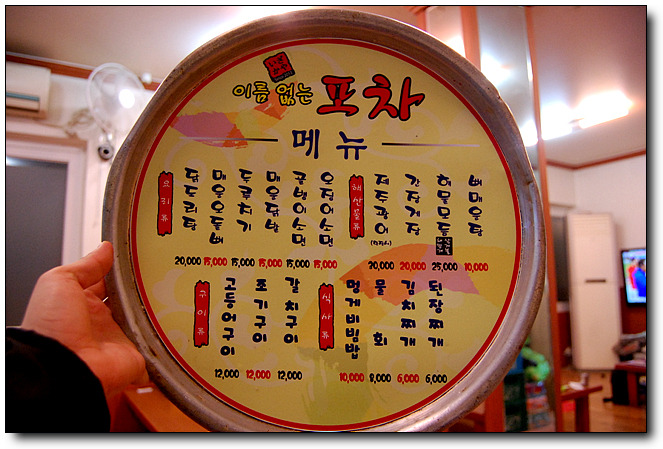 이름 없는 포차
메뉴
요리류
닭도리탕
매운오돌뼈
두루치기
매운닭발
골뱅이소면
오징어소면
20,000 15,000 15,000 15,000 15,000 15,000
해산물류
제주광어
간장게장
해물모듬
뼈매운탕
20,000 20,000 25,000 10,000
구이류
고등어구이
조기구이
갈치구이
12,000 12,000 12,000
식사류
멍게비빔밥
물회
김치찌개
된장찌개
10,000 8,000 6,000 6,000